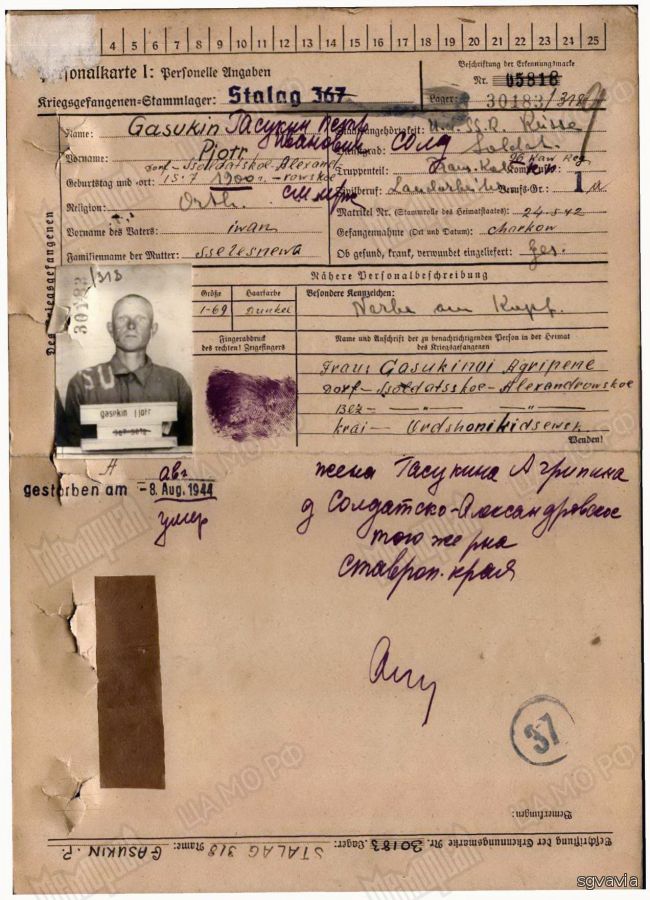 4 5 6 7 8 9 10 11 12 13 14 15 16 17 18 19 20 21 22 23 24 25
Personalkarte I: Personelle Angaben
Beschriftung der Erkennungsmarke
Nr. 05818
Kriegsgefangenen-Stammlager: Stalag 367
Lager: 30183/318
Des Kriegsgefangenen
Name: Gasukin Гасукин Петр
Иванович
Staatsangehörigkeit: Russe
Vorname: Pjotr
Dienstgrad: Soldat. солд
Dorf-Ssoldatskoe-Alexand
Truppenteil: Kaw Reg
Geburtstag und -ort: 15.7.1900. -rowskoe
Zivilberuf: Landarbeiter Berufs-Gr.: 1
Religion: Orth.
Matrikel Nr. (Stammrolle des Heimatstaates): 24.5.42
Vorname des Vaters: iwan
Gefangennahme (Ort und Datum): charkow
Familienname der Mutter: Sselesnewa
Ob gesund, krank, verwundet eingeliefert: Ges.
Nähere Personalbeschreibung
Größe
1-69
Haarfarbe
Dunkel
Besondere Kennzeichen:
Narbe am Kopf.
30183/318
SU
gasukin pjotr
Fingerabdruck
des rechten! Zeigefingers
Name und Anschrift der zu benachrichtigenden Person in der Heimat
des Kriegsgefangenen
Frau: Gasukinoi Agripene
Dorf-Ssoldatsskoe-Alexandrowskoe
Bez- — " — " —
krai- Ordshonikidsewsk
Wenden!
gestorben am -8. Aug. 1944
авг
умер
жена Гасукина Агрипина
д Солдатско-Александровское
Ставроп. края
37
Bemerkungen:
Beschriftung der Erkennungsmarke Nr. 30183 Lager: STALAG 318 Name: GASUKIN. P.
МЕМОРИАЛ
ЦА МО РФ
sgvavia